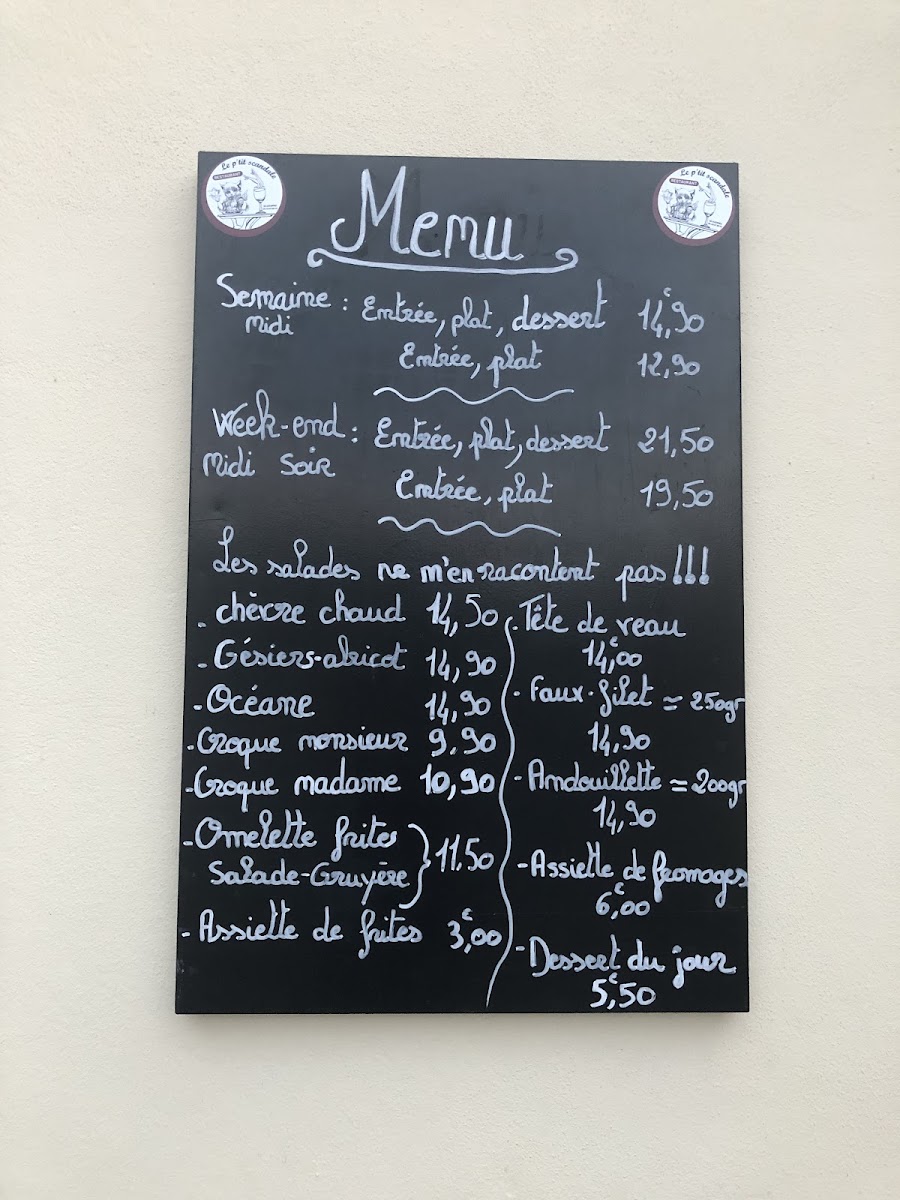 Le p'tit scandale
RESTAURANT
Le p'tit scandale
RESTAURANT
Menu
Semaine : Entrée, plat, dessert 14,€90
Midi
Entrée, plat 12,90
Week-end : Entrée, plat, dessert 21,50
Midi Soir
Entrée, plat 19,50
Les salades ne m'en racontent pas !!!
- chèvre chaud 14,50
- Gésiers-abricot 14,90
- Océane 14,90
- Croque monsieur 9.90
- Croque madame 10,90
- Omelette frites } 11,50
Salade-Gruyère
- Assiette de frites 3,€00
- Tête de veau
14,€00
- Faux-filet ≃ 250gr
14,90
- Andouillette = 200gr
14,90
- Assiette de fromages
6,€00
- Dessert du jour
5,€50